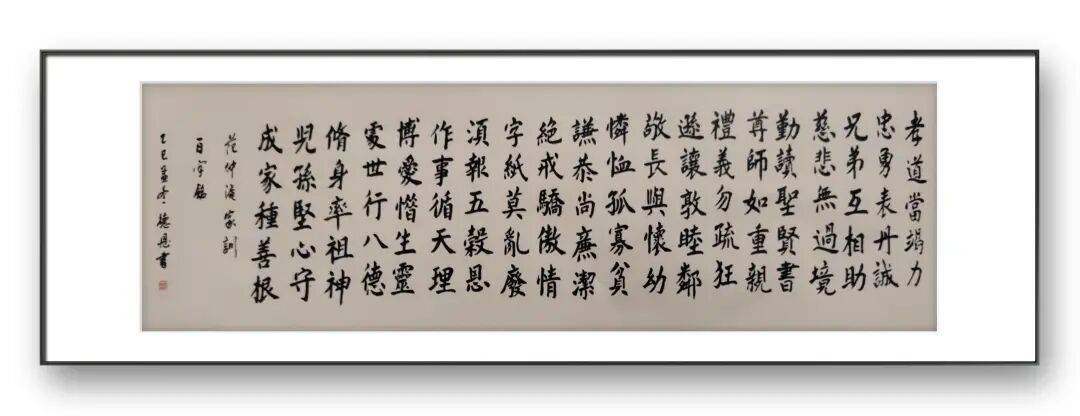 孝道當竭力
忠勇表丹誠
兄弟互相助
慈悲無過境
勤讀聖賢書
尊師如重親
禮義勿疏狂
遜讓敦睦鄰
敬長與懷幼
憐恤孤寡貧
謙恭尚廉潔
絕戒驕傲情
字紙莫亂廢
須報五穀恩
作事循天理
博愛惜生靈
處世行八德
脩身率祖神
兒孫堅心守
成家種善根
范仲淹家訓
百字銘
乙巳孟冬德恩書